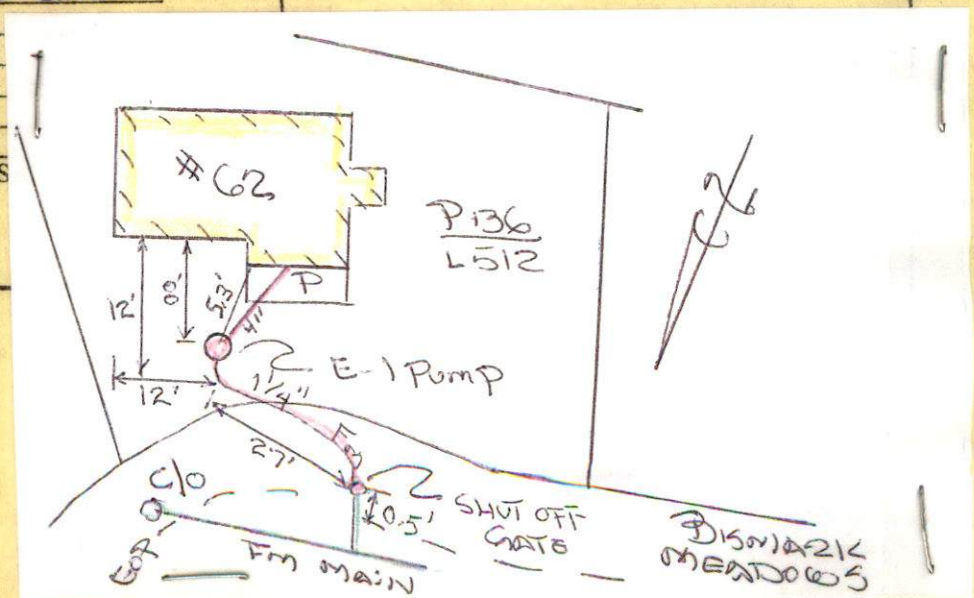 S
# 62
P 136
L 512
P
12'
5.3'
4"
E-1 Pump
12'
1 1/4"
FM
27'
C/O
0.5'
SHUT OFF
GATE
EOP
FM MAIN
BISMARK
MEADOWS